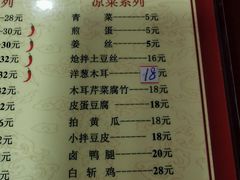 系列
凉菜系列
28元
青菜——5元
-30元
煎蛋——5元
-30元
姜丝——5元
32元
炝拌土豆丝——16元
32元
洋葱木耳——18元
32元
木耳芹菜腐竹——18元
皮蛋豆腐——18元
拍黄瓜——18元
小拌豆皮——18元
卤鸭腿——20元
白斩鸡——28元